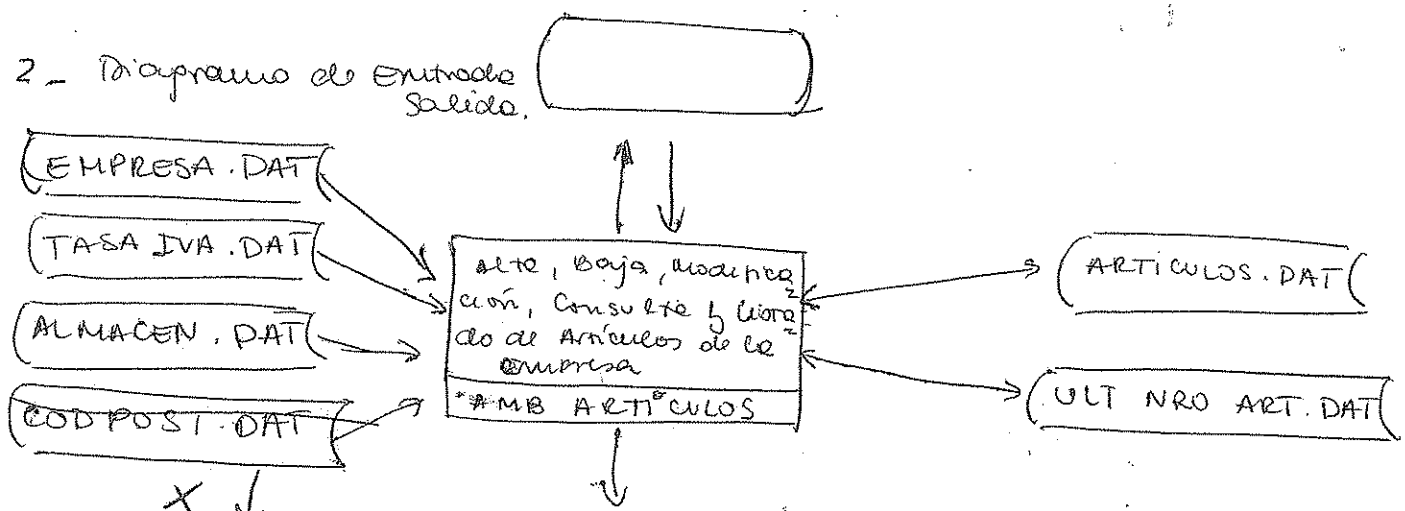 2_ Diagrama de Entrada
Salida.
EMPRESA.DAT
TASA IVA.DAT
ALMACEN.DAT
CODPOST.DAT
Alta, Baja, Modifica
ción, Consulta y Lista
do de Artículos de la
empresa
AMB ARTÍCULOS
ARTÍCULOS.DAT
ULT NRO ART.DAT
X